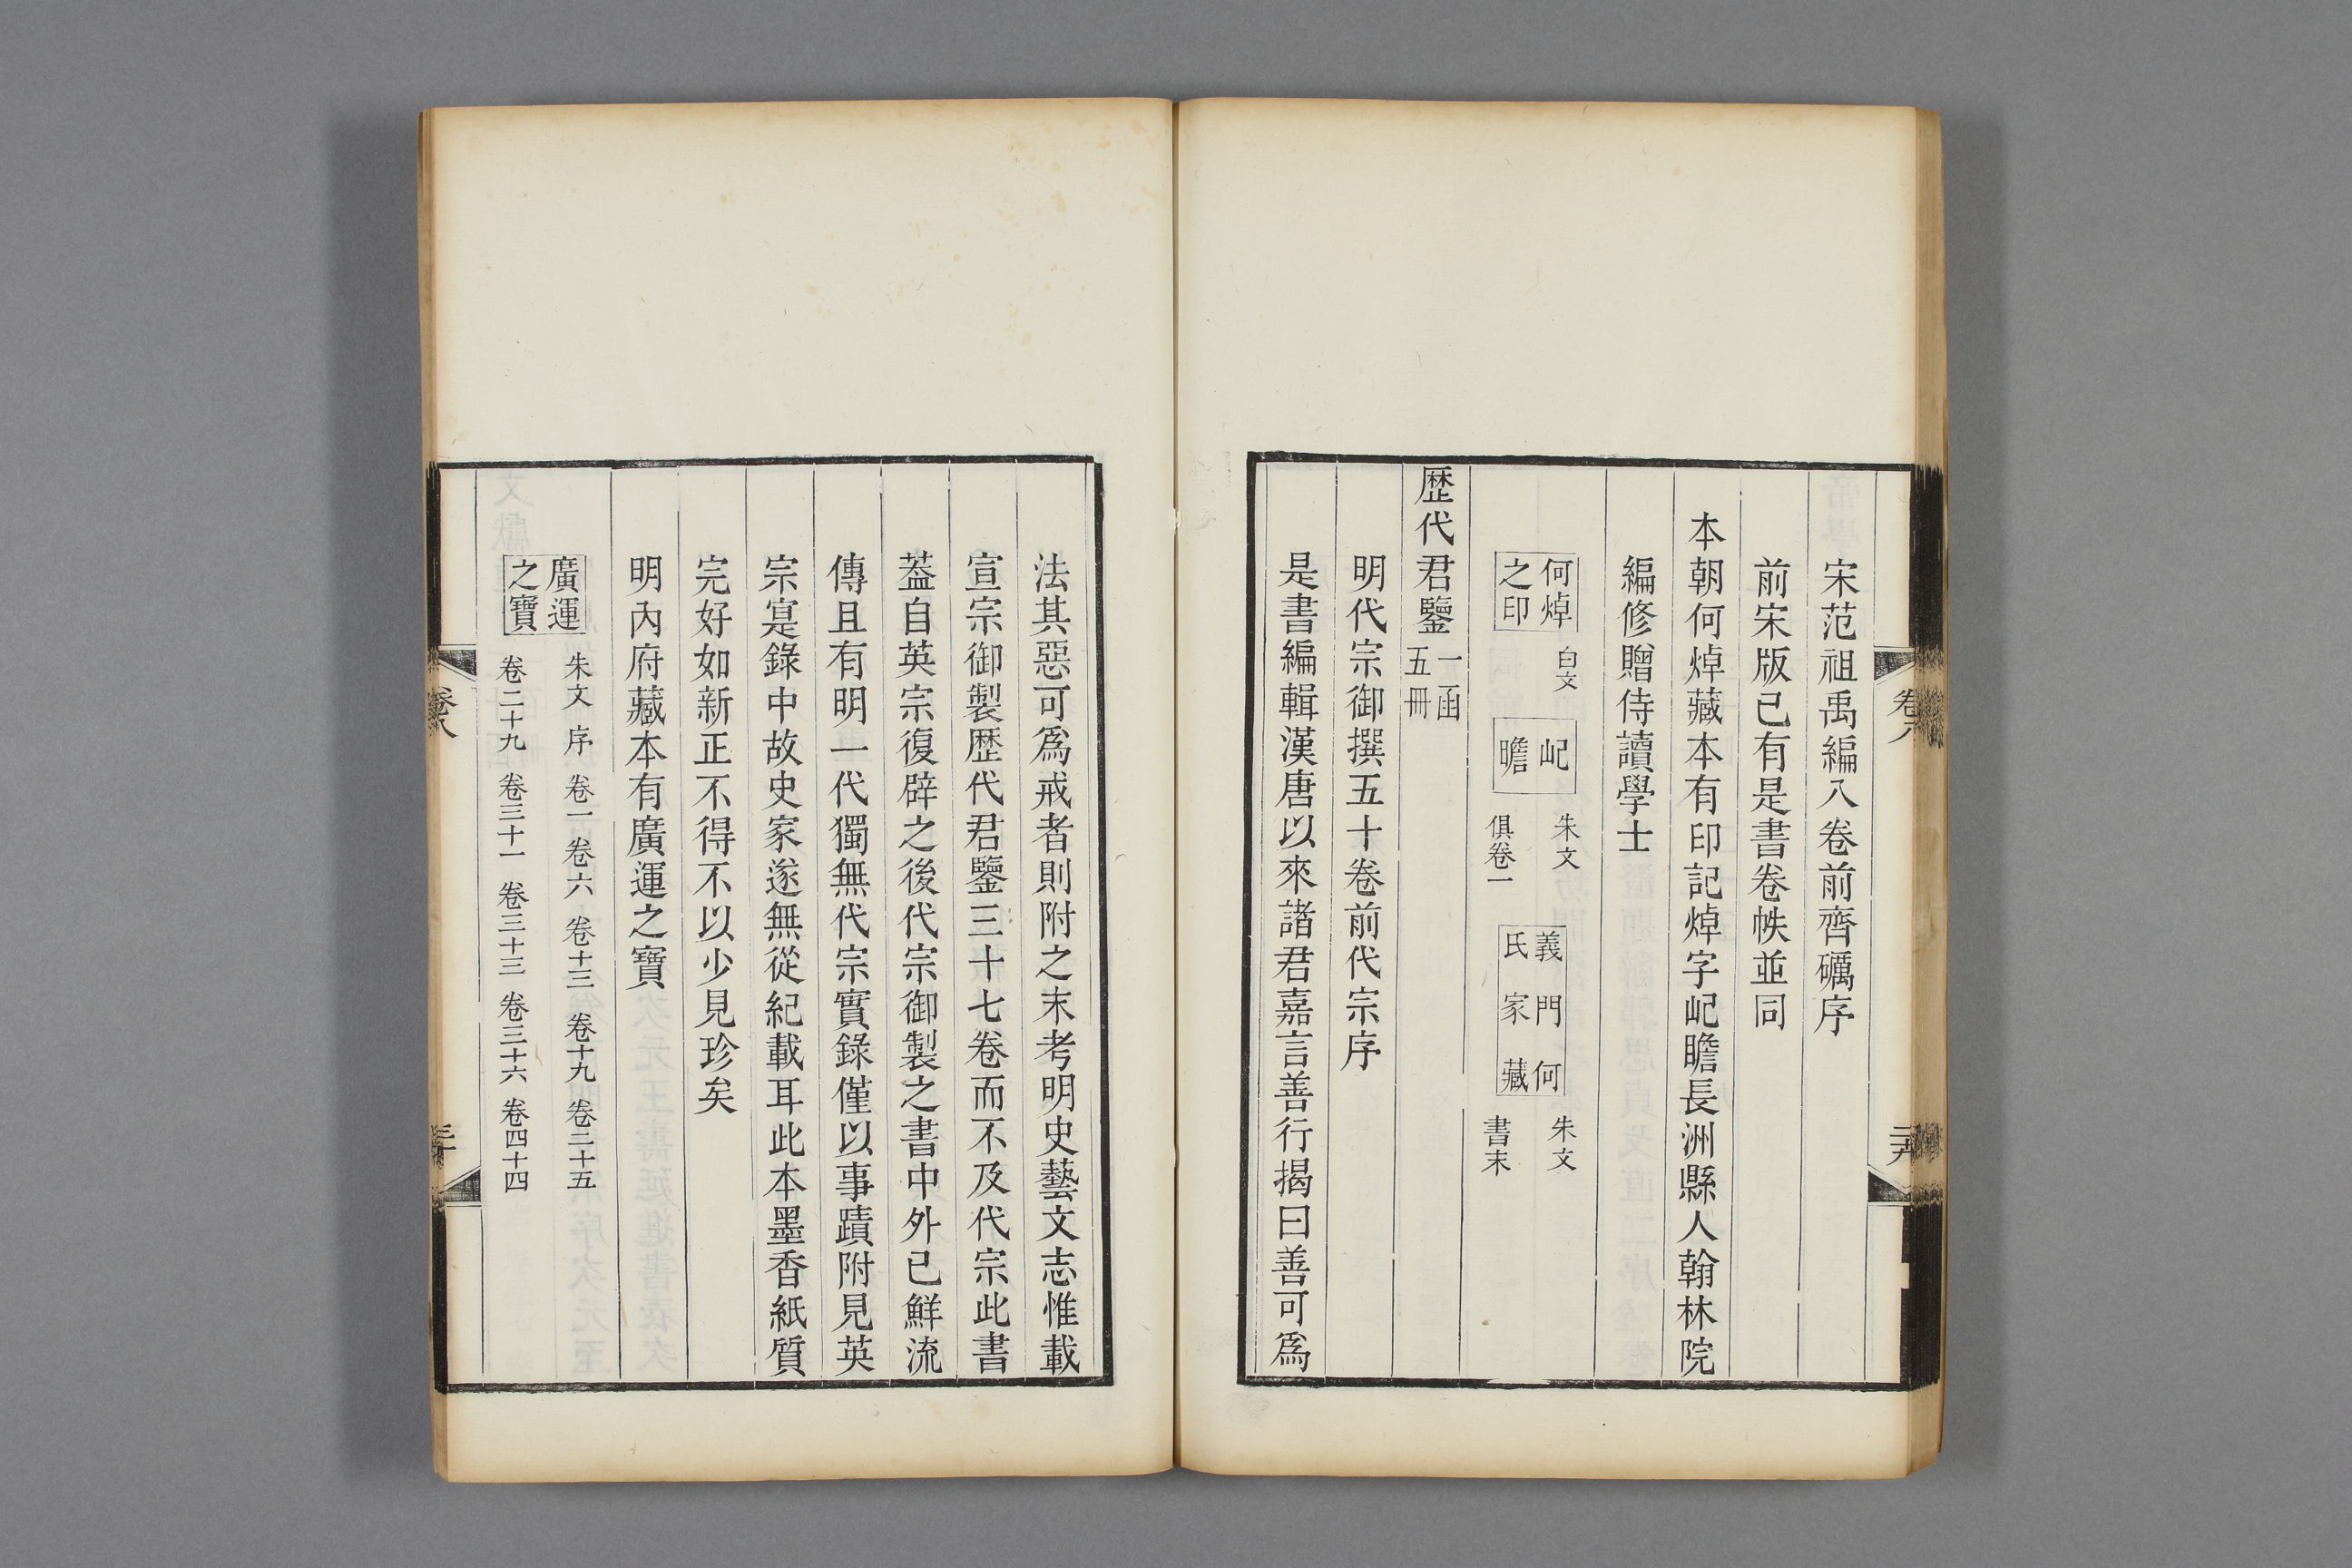 宋范祖禹編八卷前齊礪序
前宋版已有是書卷帙並同
本朝何焯藏本有印記焯字屺瞻長洲縣人翰林院
編修贈侍讀學士
何焯
之印
白文
屺
瞻
朱文
俱卷一
義門何
氏家藏
朱文
書末
歴代君鑒
一函
五冊
明代宗御撰五十卷前代宗序
是書編輯漢唐以來諸君嘉言善行揭曰善可爲
卷八
二十九
法其惡可爲戒者則附之末考明史藝文志惟載
宣宗御製歴代君鑒三十七卷而不及代宗此書
葢自英宗復辟之後代宗御製之書中外已鮮流
傳且有明一代獨無代宗實錄僅以事蹟附見英
宗寔錄中故史家遂無從紀載耳此本墨香紙質
完好如新正不得不以少見珍矣
明內府藏本有廣運之寶
廣運
之寶
朱文 序 卷一 卷六 卷十三 卷十九 卷二十五
卷二十九 卷三十一 卷三十三 卷三十六 卷四十四
卷八
三十